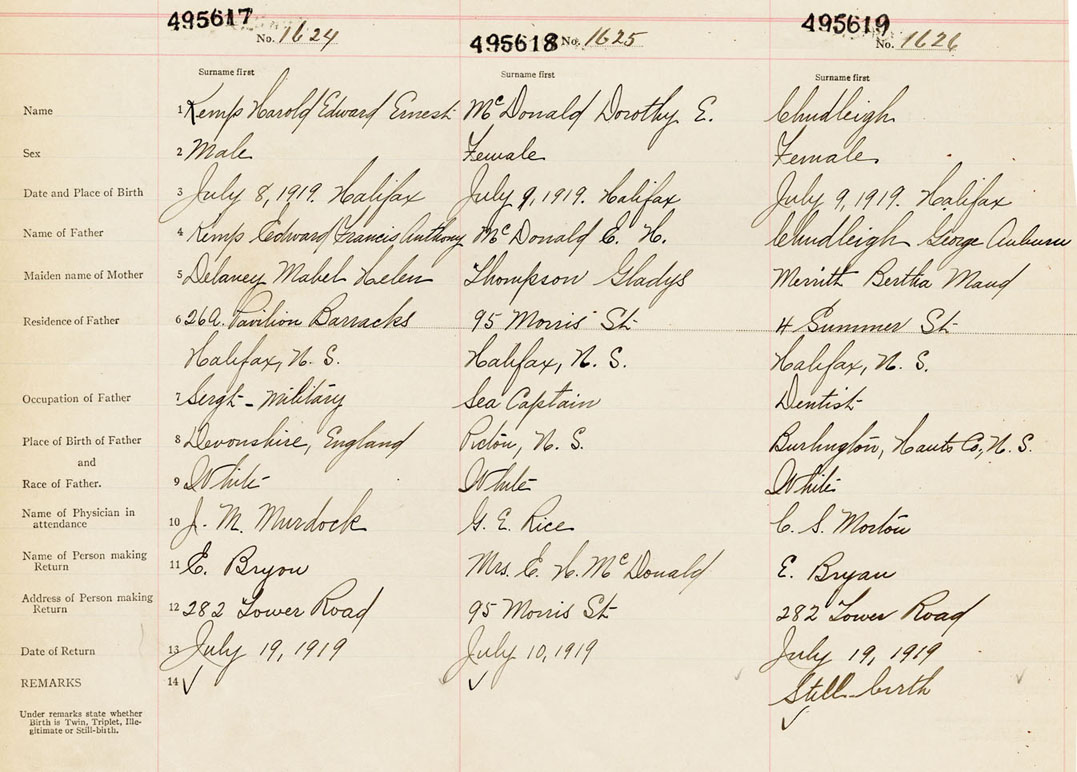 495617 495618 495619
No. 1624 No. 1625 No. 1626
Surname first Surname first Surname first
Name 1 Kemp Harold Edward Ernest McDonald Dorothy E. Chudleigh
Sex 2 Male Female Female
Date and Place of Birth 3 July 8, 1919. Halifax July 9, 1919. Halifax July 9, 1919. Halifax
Name of Father 4 Kemp Edward Francis Anthony McDonald E. H. Chudleigh George Auburn
Maiden name of Mother 5 Delaney Mabel Helen Thompson Gladys Merrith Bertha Maud
Residence of Father 6 26A. Pavilion Barracks 95 Morris St. 4 Summer St.
Halifax, N. S. Halifax, N. S. Halifax, N. S.
Occupation of Father 7 Sergt - Military Sea Captain Dentist
Place of Birth of Father 8 Devonshire, England Pictou, N. S. Burlington, Hants Co, N. S.
and
Race of Father. 9 White White White
Name of Physician in attendance 10 J. M. Murdock G. E. Rice C. S. Morton
Name of Person making Return 11 E. Bryon Mrs. E. H. McDonald E. Bryan
Address of Person making Return 12 282 Tower Road 95 Morris St. 282 Tower Road
Date of Return 13 July 19, 1919 July 10, 1919 July 19, 1919
REMARKS 14 ✓ ✓ Still-birth
✓
Under remarks state whether
Birth is Twin, Triplet, Ille-
gitimate or Still-birth.